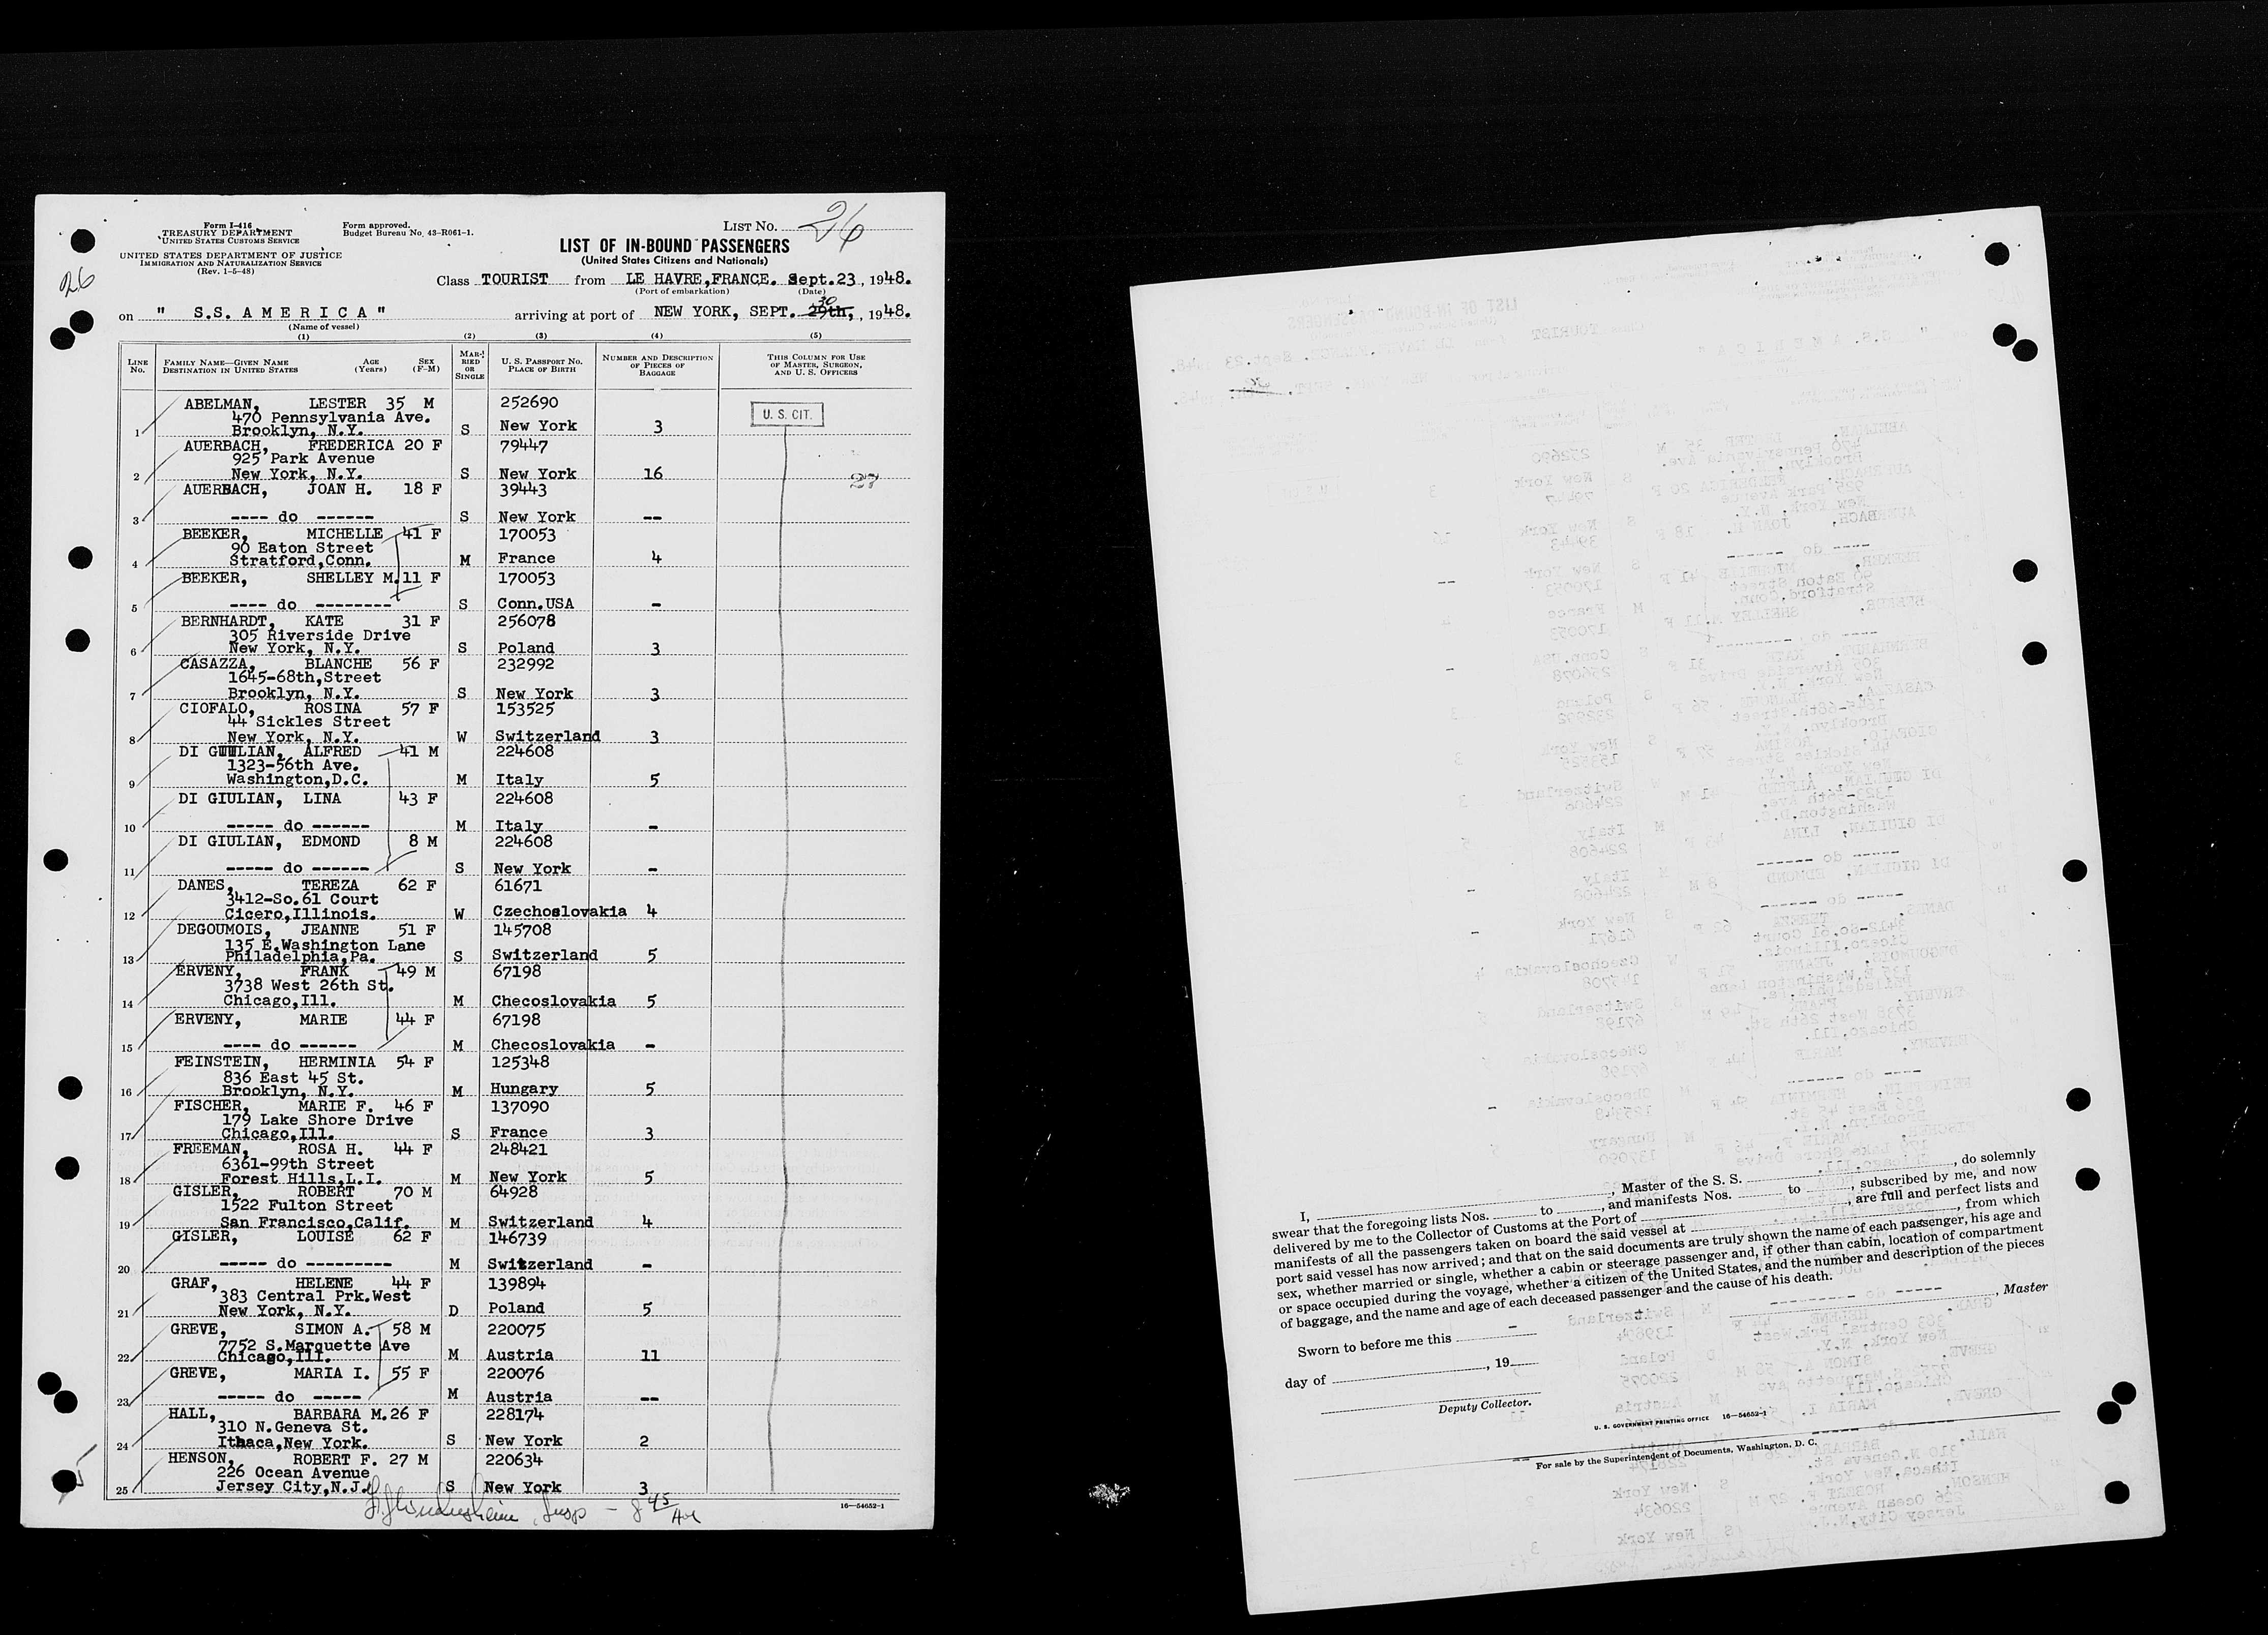 Form I-416
TREASURY DEPARTMENT
UNITED STATES CUSTOMS SERVICE
UNITED STATES DEPARTMENT OF JUSTICE
IMMIGRATION AND NATURALIZATION SERVICE
(Rev. 1-5-48)
Form approved.
Budget Bureau No. 43-R061-1.
LIST NO. 26
26
LIST OF IN-BOUND PASSENGERS
(United States Citizens and Nationals)
Class TOURIST from LE HAVRE,FRANCE. Sept.23, 1948.
(Port of embarkation) (Date)
30
on " S.S. A M E R I C A " arriving at port of NEW YORK, SEPT. 29th, , 1948.
(Name of vessel)
(1) (2) (3) (4) (5)
LINE No. FAMILY NAME—GIVEN NAME DESTINATION IN UNITED STATES AGE (Years) SEX (F-M) MARRIED OR SINGLE U. S. PASSPORT NO. PLACE OF BIRTH NUMBER AND DESCRIPTION OF PIECES OF BAGGAGE THIS COLUMN FOR USE OF MASTER, SURGEON, AND U. S. OFFICERS
ABELMAN, LESTER 35 M 252690
470 Pennsylvania Ave. U. S. CIT.
1 Brooklyn, N.Y. S New York 3
AUERBACH, FREDERICA 20 F 79447
925 Park Avenue
2 New York, N.Y. S New York 16 27
AUERBACH, JOAN H. 18 F 39443
3 ---- do ------ S New York --
BEEKER, MICHELLE 41 F 170053
90 Eaton Street
4 Stratford,Conn. M France 4
BEEKER, SHELLEY M.11 F 170053
5 ---- do -------- S Conn.USA -
BERNHARDT, KATE 31 F 256078
305 Riverside Drive
6 New York, N.Y. S Poland 3
CASAZZA, BLANCHE 56 F 232992
1645-68th,Street
7 Brooklyn, N.Y. S New York 3
CIOFALO, ROSINA 57 F 153525
44 Sickles Street
8 New York, N.Y. W Switzerland 3
DI GIULIAN, ALFRED 41 M 224608
1323-56th Ave.
9 Washington,D.C. M Italy 5
DI GIULIAN, LINA 43 F 224608
10 ----- do ------ M Italy -
DI GIULIAN, EDMOND 8 M 224608
11 ----- do ------ S New York -
DANES, TEREZA 62 F 61671
3412-So.61 Court
12 Cicero,Illinois. W Czechoslovakia 4
DEGOUMOIS, JEANNE 51 F 145708
135 E.Washington Lane
13 Philadelphia,Pa. S Switzerland 5
ERVENY, FRANK 49 M 67198
3738 West 26th St.
14 Chicago,Ill. M Checoslovakia 5
ERVENY, MARIE 44 F 67198
15 ---- do ------ M Checoslovakia -
FEINSTEIN, HERMINIA 54 F 125348
836 East 45 St.
16 Brooklyn, N.Y. M Hungary 5
FISCHER, MARIE F. 46 F 137090
179 Lake Shore Drive
17 Chicago,Ill. S France 3
FREEMAN, ROSA H. 44 F 248421
6361-99th Street
18 Forest Hills,L.I. M New York 5
GISLER, ROBERT 70 M 64928
1522 Fulton Street
19 San Francisco,Calif. M Switzerland 4
GISLER, LOUISE 62 F 146739
20 ----- do --------- M Switzerland -
GRAF, HELENE 44 F 139894
383 Central Prk.West
21 New York, N.Y. D Poland 5
GREVE, SIMON A. 58 M 220075
7752 S.Marquette Ave
22 Chicago,Ill. M Austria 11
GREVE, MARIA I. 55 F 220076
23 ----- do ----- M Austria --
HALL, BARBARA M.26 F 228174
310 N.Geneva St.
24 Ithaca,New York. S New York 2
HENSON, ROBERT F. 27 M 220634
226 Ocean Avenue
25 Jersey City,N.J. S New York 3
16—54652-1
I, , Master of the S. S. , do solemnly
swear that the foregoing lists Nos. to , and manifests Nos. to , subscribed by me, and now
delivered by me to the Collector of Customs at the Port of , are full and perfect lists and
manifests of all the passengers taken on board the said vessel at , from which
port said vessel has now arrived; and that on the said documents are truly shown the name of each passenger, his age and
sex, whether married or single, whether a cabin or steerage passenger and, if other than cabin, location of compartment
or space occupied during the voyage, whether a citizen of the United States, and the number and description of the pieces
of baggage, and the name and age of each deceased passenger and the cause of his death.
, Master
Sworn to before me this
day of , 19
Deputy Collector.
U. S. GOVERNMENT PRINTING OFFICE 16—54652-1
For sale by the Superintendent of Documents, Washington, D. C.